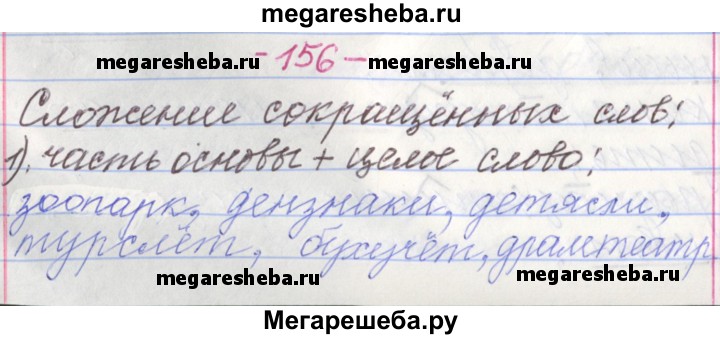 megaresheba.ru
- 156 -
megaresheba.ru megaresheba.ru
Сложение сокращённых слов:
1). часть основы + целое слово:
зоопарк, дензнаки, детясли,
турслёт, бухучёт, драмтеатр
megaresheba.ru megaresheba.ru
Мегарешеба.ру